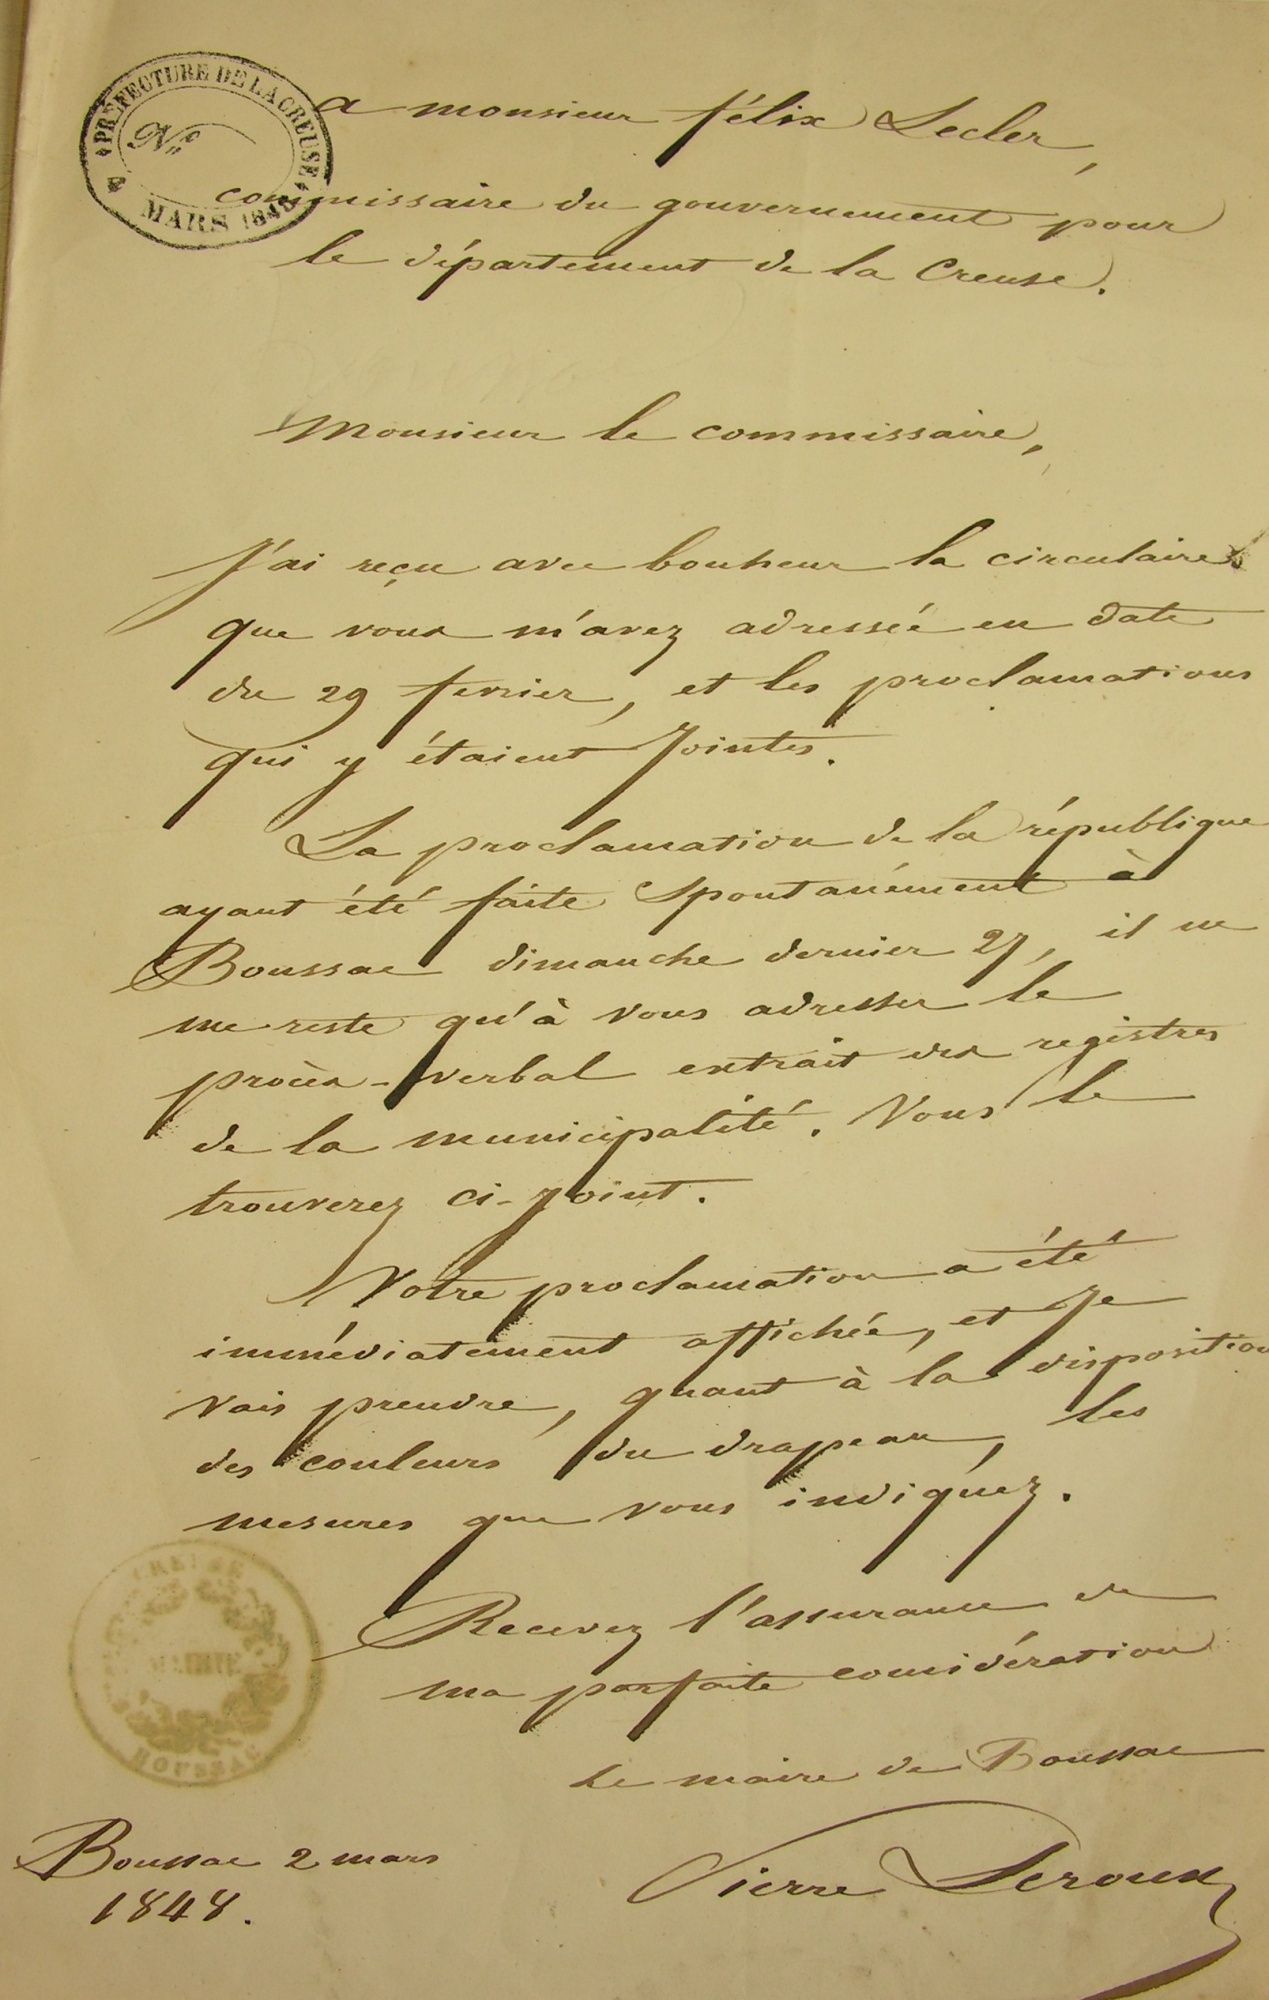 PRÉFECTURE DE LA CREUSE
N°
MARS 1848
a monsieur félix Lecler,
commissaire du gouvernement pour
le département de la Creuse.
Monsieur le commissaire,
J'ai reçu avec bonheur la circulaire
que vous m'avez adressée en date
du 29 fevrier, et les proclamations
qui y étaient Jointes.
La proclamation de la république
ayant été faite Spontanément à
Boussac dimanche dernier 27, il ne
me reste qu'à vous adresser le
procès-verbal extrait des registres
de la municipalité. Vous le
trouverez ci-joint.
Votre proclamation a été
immédiatement affichée, et Je
vais prendre, quant à la disposition
des couleurs du drapeau, les
mesures que vous indiquez.
Recevez l'assurance de
ma parfaite considération
Le maire de Boussac
Pierre Leroux
CREUSE
MAIRIE
BOUSSAC
Boussac 2 mars
1848.